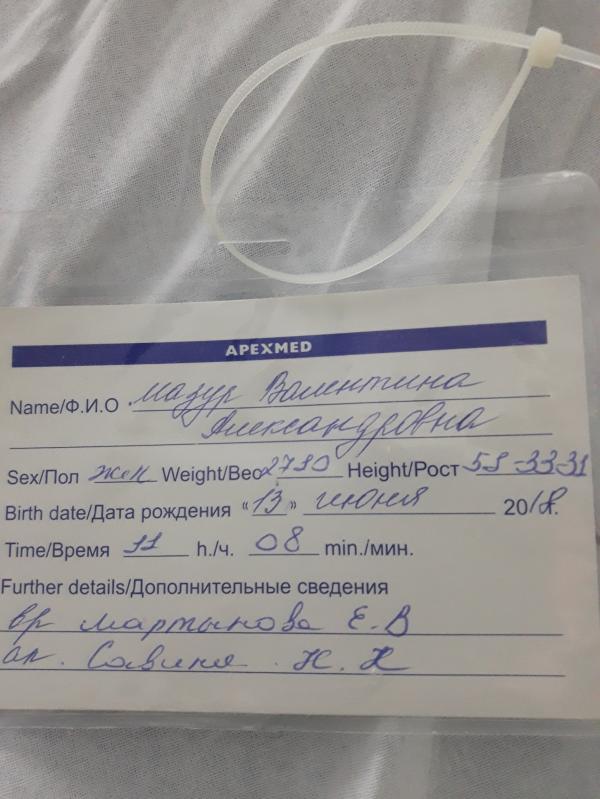 APEXMED
Name/Ф.И.О Мазур Валентина
Александровна
Sex/Пол жен Weight/Вес 2790 Height/Рост 51-33-31
Birth date/Дата рождения «13» июня 2018.
Time/Время 11 h./ч. 08 min./мин.
Further details/Дополнительные сведения
вр Мартынова Е.В
ак. Савина Н.Н